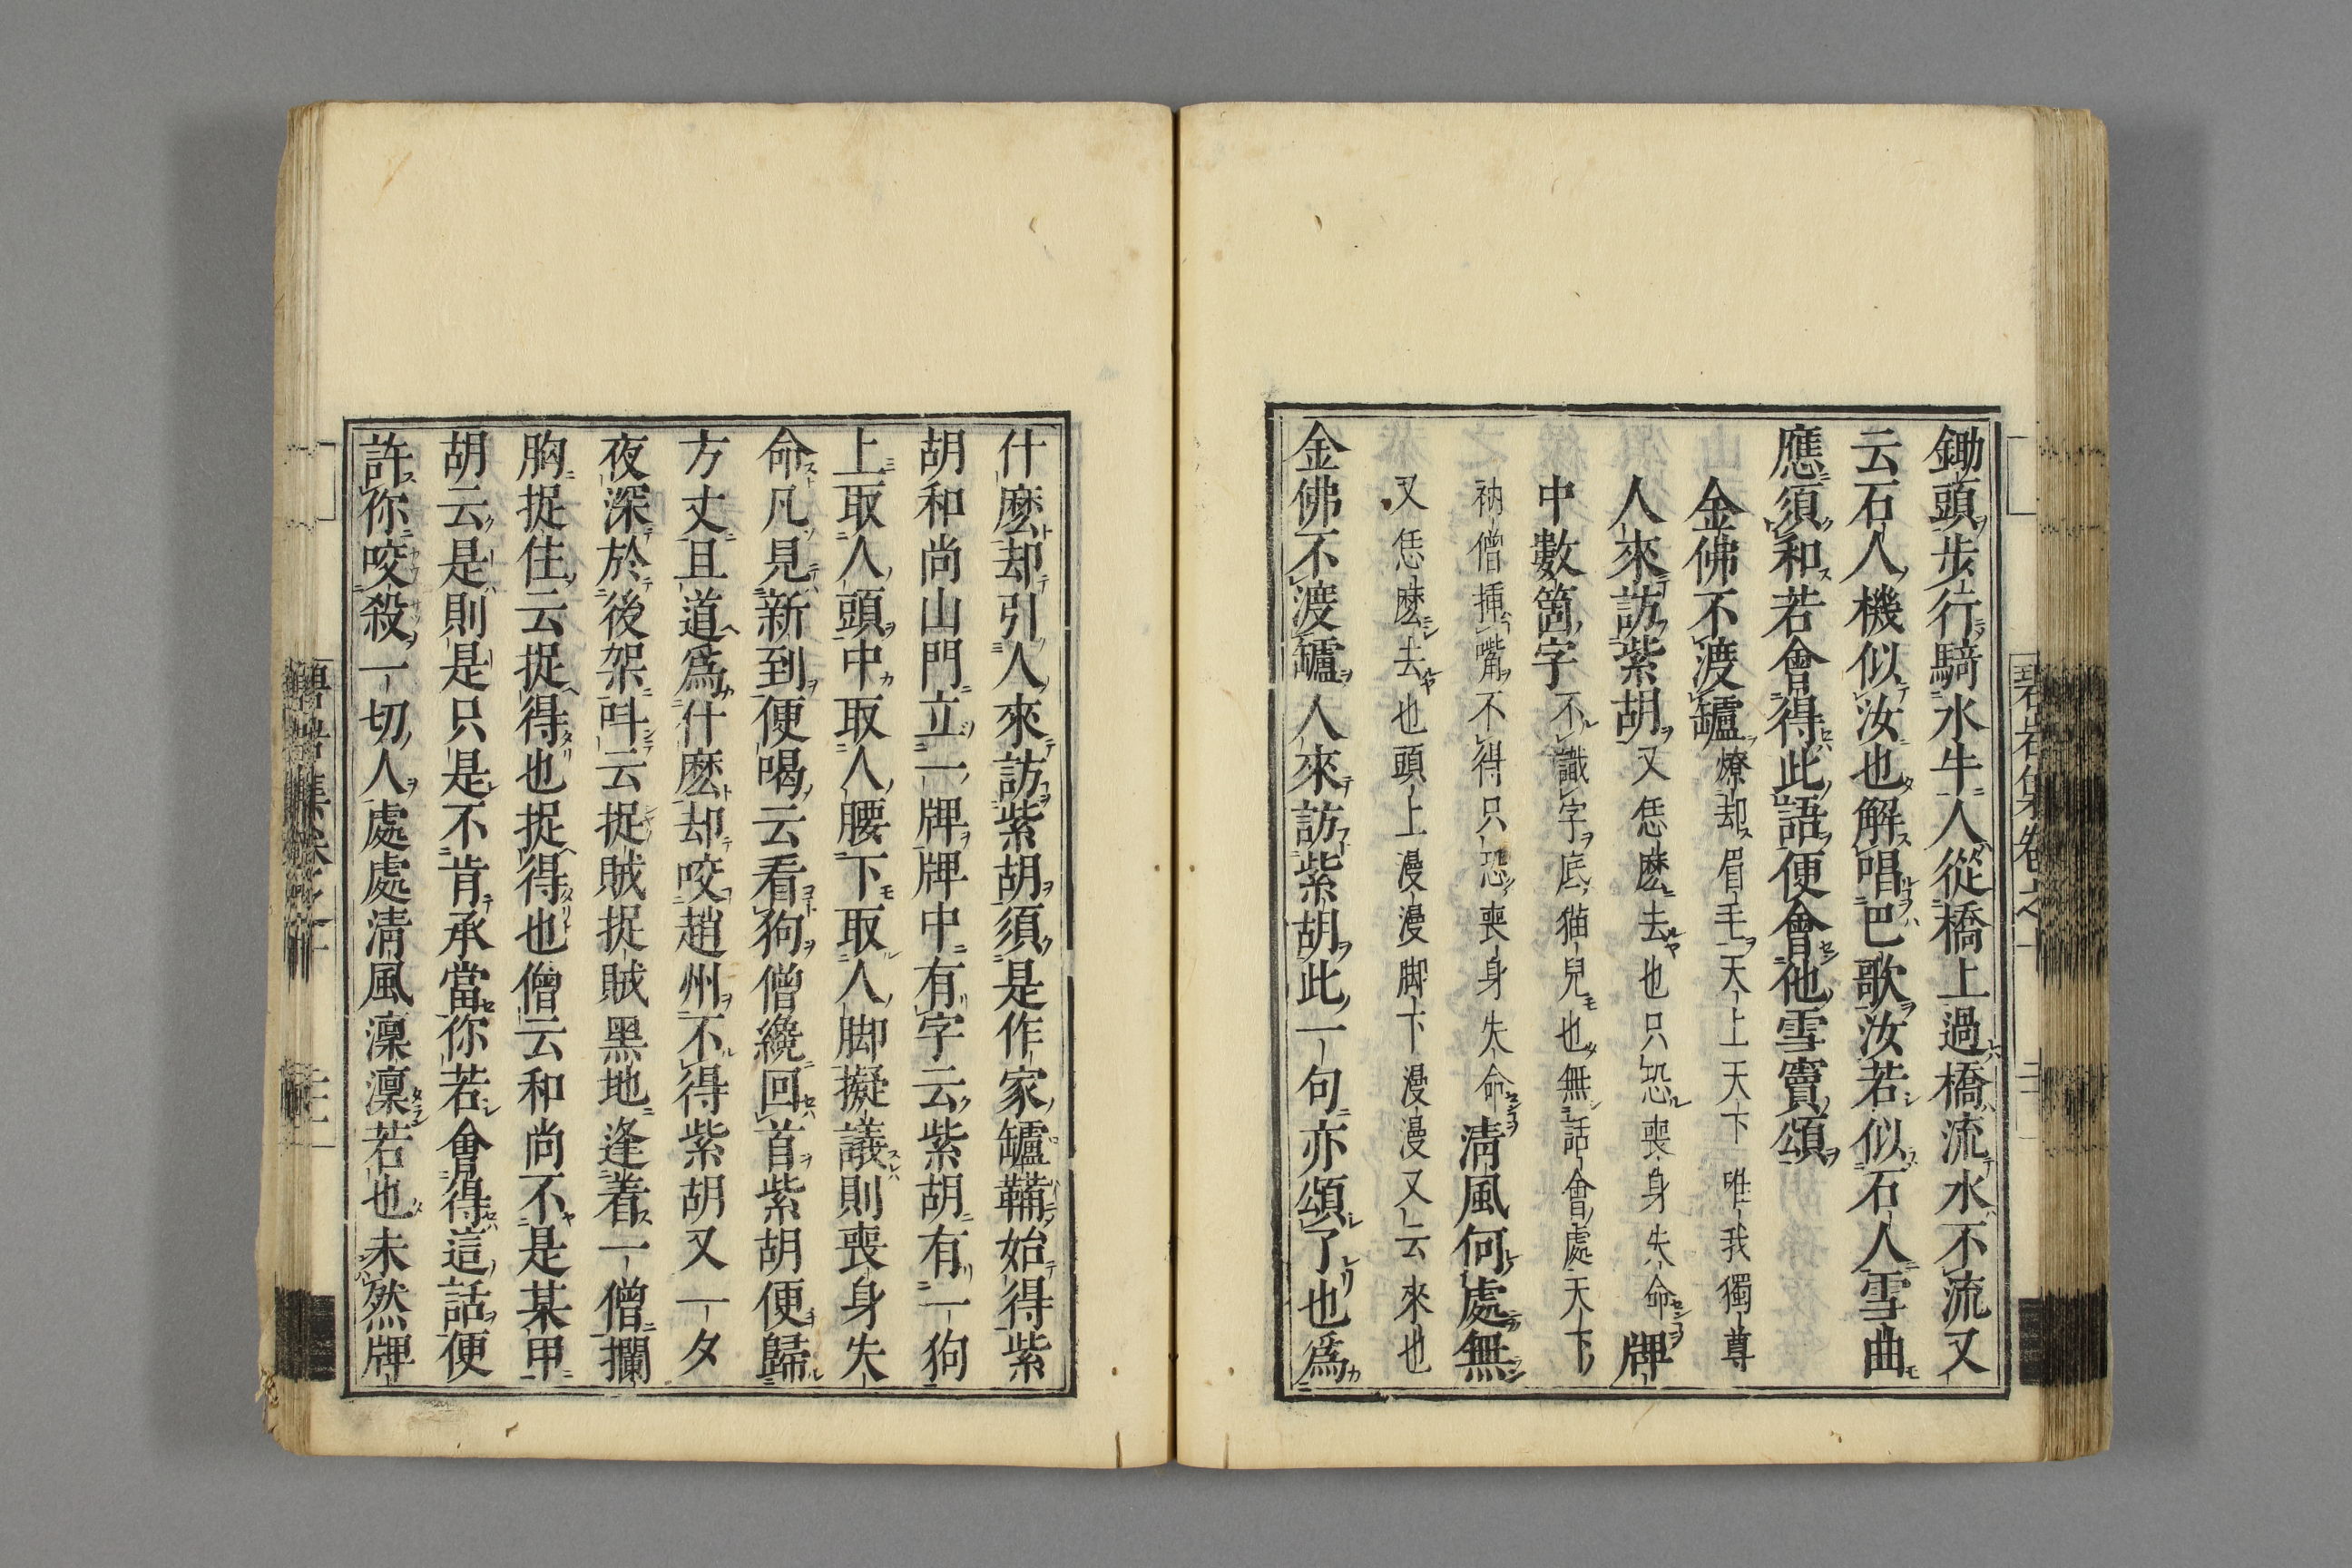 鋤頭步行騎水牛人從橋上過橋流水不流又
云石人機似汝也解唱巴歌汝若似石人雪曲
應須和若會得此語便會他雪竇頌
金佛不渡鑪燎却眉毛天上天下唯我獨尊
人來訪紫胡又恁麽去也只恐喪身失命牌
中數箇字不識字底猫兒也無話會處天下
衲僧挿嘴不得只恐喪身失命清風何處無
又恁麽去也頭上漫漫脚下漫漫又云來也
金佛不渡鑪人來訪紫胡此一句亦頌了也爲
什麽却引人來訪紫胡須是作家鑪鞴始得紫
胡和尚山門立一牌牌中有字云紫胡有一狗
上取人頭中取人腰下取人脚擬議則喪身失
命凡見新到便喝云看狗僧纔回首紫胡便歸
方丈且道爲什麽却咬趙州不得紫胡又一夕
夜深於後架叫云捉賊捉賊黑地逢着一僧攔
胸捉住云捉得也捉得也僧云和尚不是某甲
胡云是則是只是不肯承當你若會得這話便
許你咬殺一切人處處清風凜凜若也未然牌